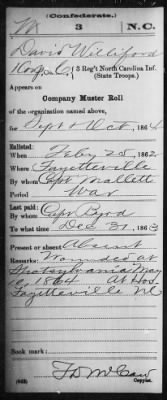 (Confederate.)
W 3 N.C.
David Williford
Co. C, 3 Reg't North Carolina Inf.
(State Troops.)
Appears on
Company Muster Roll
of the organization named above,
for Sept & Oct, 186
Enlisted:
When Feby 25, 1862
Where Fayetteville
By whom Capt Mallett
Period War
Last paid:
By whom Capt Byrd
To what time Dec 31, 1863
Present or absent Absent
Remarks: Wounded at
Spotsylvania May
1864 At Hos
Fayetteville NC
Book mark:
(642) Copyist.